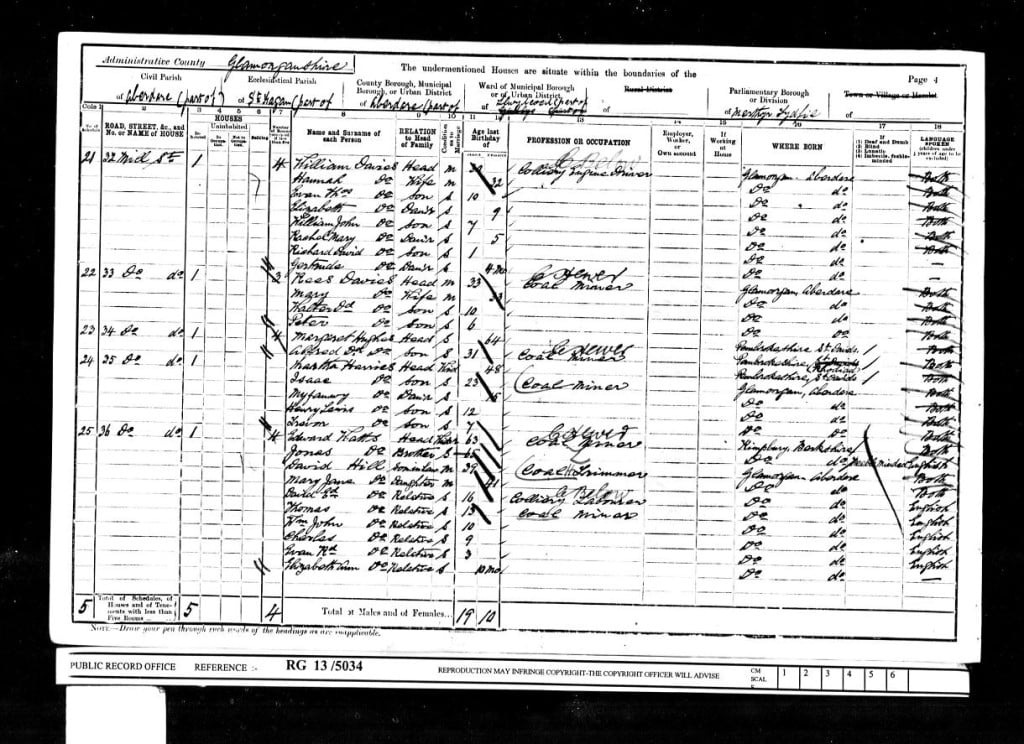 Administrative County Glamorganshire The undermentioned Houses are situate within the boundaries of the Page 4
Civil Parish Ecclesiastical Parish County Borough, Municipal Borough, or Urban District Ward of Municipal Borough or of Urban District Rural District Parliamentary Borough or Division Town or Village or Hamlet
of Aberdare (part of) of St Fagan (part of of Aberdare (part of of Llwydcoed (part of of of Merthyr Tydfil of
Cols. 1 2 3 4 5 6 7 8 9 10 11 12 13 14 15 16 17 18
No. of Schedule ROAD, STREET, &c., and No. or NAME of HOUSE HOUSES Uninhabited Name and Surname of each Person RELATION to Head of Family Condition as to Marriage Age last Birthday of PROFESSION OR OCCUPATION Employer, Worker, or Own account If Working at Home WHERE BORN (1) Deaf and Dumb (2) Blind (3) Lunatic (4) Imbecile, feeble-minded LANGUAGE SPOKEN (children under 3 years of age to be excluded)
21 32 Mid St 1 4 William Davies Head M Colliery Engine Driver Below Glamorgan Aberdare Both
Hannah Do Wife M 32 Do do Both
Evan Thos Do Son S 10 Do do Both
Elizabeth Do Daur S 9 Do do Both
William John Do Son S 7 Do do Both
Rachel Mary Do Daur S 5 Do do Both
Richard David Do Son S 1 Do do —
Gertrude Do Daur S 4 mo Do do —
22 33 Do do 1 3 Rees Davies Head M 33 Coal Miner Hewer Glamorgan, Aberdare Both
Mary Do Wife M Do do Both
Walter Dd Do Son S 10 Do do Both
Peter Do Son S 6 Do do Both
23 34 Do do 1 4 Margaret Hughes Head S 64 Pembrokeshire St Davids Both
Alfred Do Son S 31 Coal Miner Hewer Pembrokeshire, St Davids Both
24 35 Do do 1 Martha Harries Head Wid 48 Pembrokeshire, St Davids Both
Isaac Do Son S 23 Coal Miner Glamorgan, Aberdare Both
Myfanwy Do Daur S 15 Do do Both
Henry Lewis Do Son S 12 Do do Both
Trevor Do Son S 7 Do Do Both
25 36 Do do 1 4 Edward Watts Head 63 Coal Miner Hewer Berkshire English
Jonas Do Brother S Do do Feeble Minded English
David Hill Son in law M 39 Coal Trimmer Glamorgan Aberdare Both
Mary Jane Do Daughter M 41 Do do Both
David Do Relative S 16 Colliery Labourer Below Do do English
Thomas Do Relative S 13 Coal Miner Do do English
Wm John Do Relative S 10 Do do English
Charles Do Relative S 9 Do do English
Evan Rd Do Relative S 3 Do do English
Elizabeth Ann Do Relative S 10 mo Do do —
5 Total of Schedules, of Houses and of Tenements with less than Five Rooms 5 4 Total of Males and of Females... 19 10
NOTE—Draw your pen through such words of the headings as are inapplicable.
PUBLIC RECORD OFFICE REFERENCE :- RG 13/5034 REPRODUCTION MAY INFRINGE COPYRIGHT-THE COPYRIGHT OFFICER WILL ADVISE CM SCALE 1 2 3 4 5 6